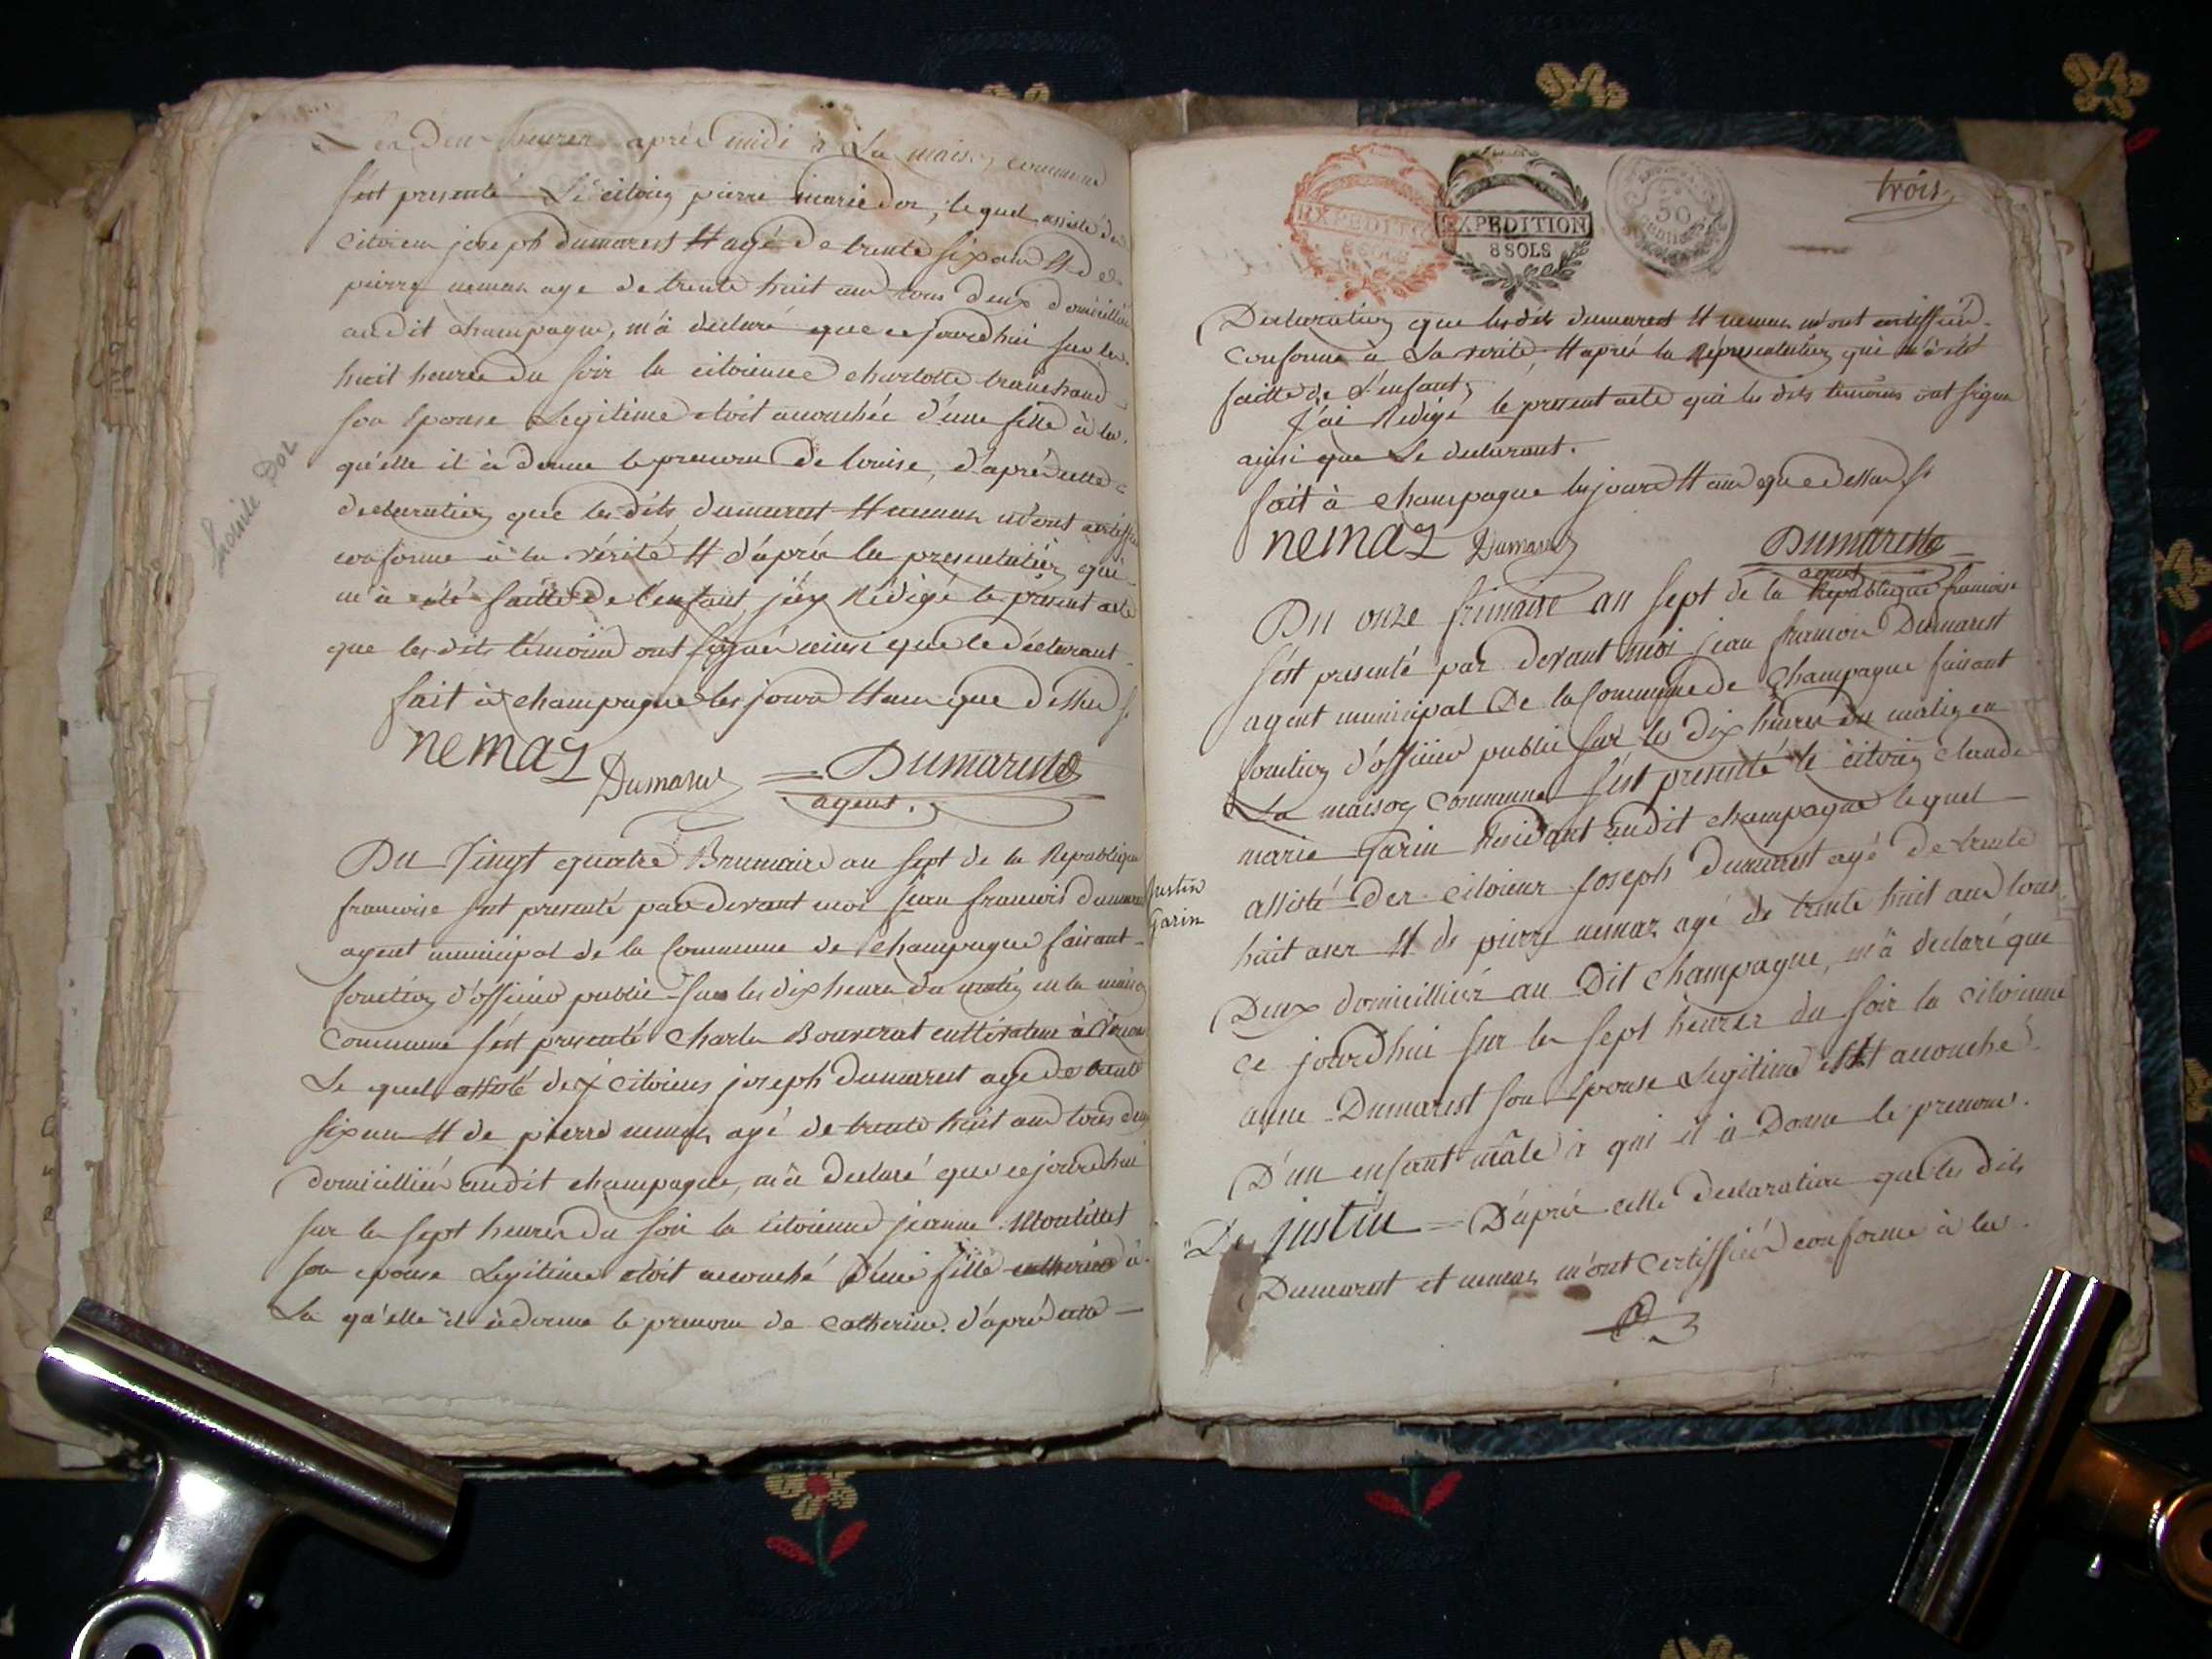 heures aprés midi à La maison commune
s'est presenté Le citoien pierre marie dor, lequel assisté des
citoiens joseph dumarest et agé de trente six ans et de
pierre nemaz age de trente huit ans tous deux domicilliés
audit champagne, m'a declaré que ce jourdhui sur les
huit heures du soir la citoienne charlotte
son Epouse Legitime etoit accouchée d'une fille à la
qu'elle il à donne le prenom de louise, d'aprés cette
declaration que les dits dumarest et nemaz m'ont certiffié
conforme à la vérité et d'aprés la presentation qui
m'a été faitte de l'enfant, j'ay Rédigé le present acte
que les dits témoins ont signés ainsi que le déclarant
fait à champagne les jours et an que dessus
nemaz Dumarest Dumarest
agent.
Dor
Du Vingt quatre Brumaire an sept de la Republique
francoise s'est presenté par devant moi jean francois dumarest
agent municipal de la Commune de champagne faisant
fonction d'officier public sur les dix heures du matin en la maison
Commune s'est presenté Charles Bouverat cultivateur à
Le quel assisté des citoiens joseph dumarest age de trente
six ans et de pierre nemaz agé de trente huit ans tous deux
domicilliés audit champagne, m'a declaré que ce jourdhui
sur les sept heures du soir la citoienne jeanne
son epouse Legitime etoit accouché d'une fille catherine à
La qu'elle il à donne le prenom de Catherine. d'aprés cette
trois
EXPEDITION
8 SOLS
EXPEDITION
8 SOLS
50
Declaration que les dits dumarest et nemaz m'ont certiffiés
conforme à La verité, et aprés la Répresentation qui m'à été
faitte de L'enfant,
J'ai Rédigé le present acte que les dits temoins ont signé
ainsi que Le declarant.
fait à champagne les jours et an que dessus
nemaz Dumarest Dumarest
agent
justin
Garin
Du onze frimaire an sept de la Republique francoise
s'est presenté par devant moi jean francois Dumarest
agent municipal De la Commune de Champagne faisant
fonction d'officier public sur les dix heures du matin en
La maison Commune s'est presenté le citoien claude
marie Garin Residant audit champagne lequel
assisté Des citoiens Joseph Dumarest agé de trente
huit ans et de pierre nemaz agé de trente huit ans tous
Deux domicilliés au Dit Champagne, m'à declaré que
ce jourdhui sur les sept heures du soir la citoienne
anne Dumarest son Epouse Legitime est accouché
D'un enfant mâle à qui il à Donne le prenom
De justin D'aprés cette declaration que les dits
Dumarest et nemaz m'ont certiffiés conforme à la